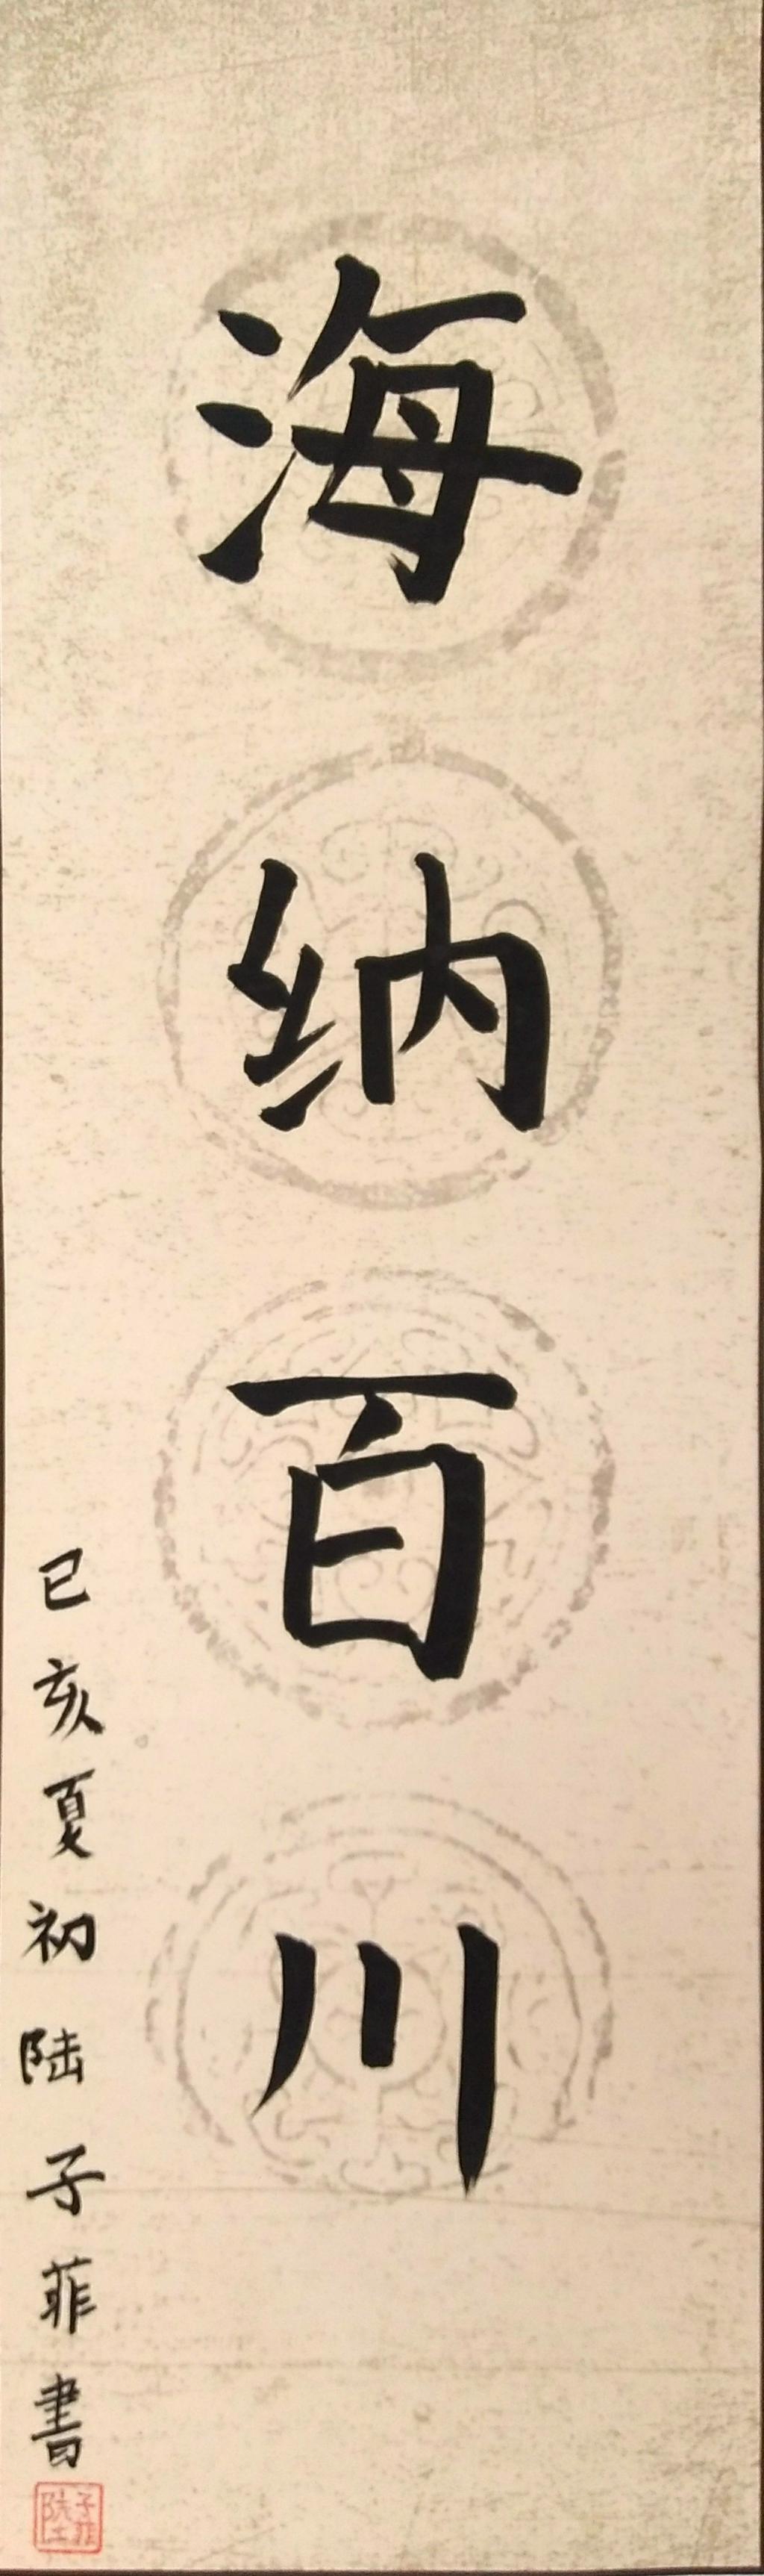 海纳百川
己亥夏初陆子菲書
子菲
陸